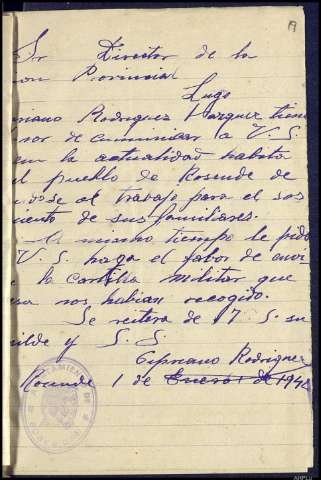 Sr Director de la
on Provincial
Lugo
priano Rodriguez Vazquez tien
nor de cumunicar a V. S.
en la actualidad habita
el pueblo de Rosende de
dose al trabajo para el sos
iento de sus familiares.
Al mismo tiempo le pido
V. S. haga el fabor de envi
e la cartilla militar que
nos habian recogido.
Se reitera de V. S. su
ilde y S. S.
Cipriano Rodriguez
1 de Enero de 1942
AYUNTAMIENTO DE